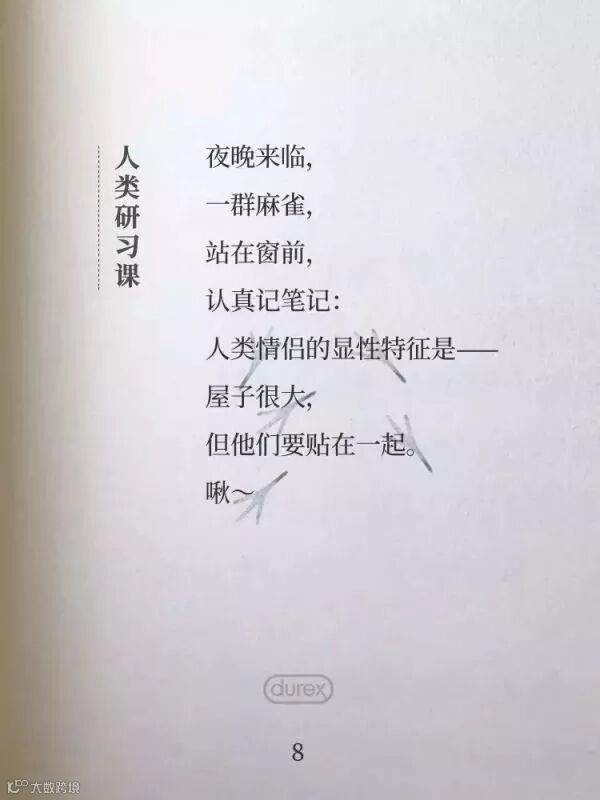 人类研习课
夜晚来临，
一群麻雀，
站在窗前，
认真记笔记：
人类情侣的显性特征是——
屋子很大，
但他们要贴在一起。
啾～
durex
8
大数跨境